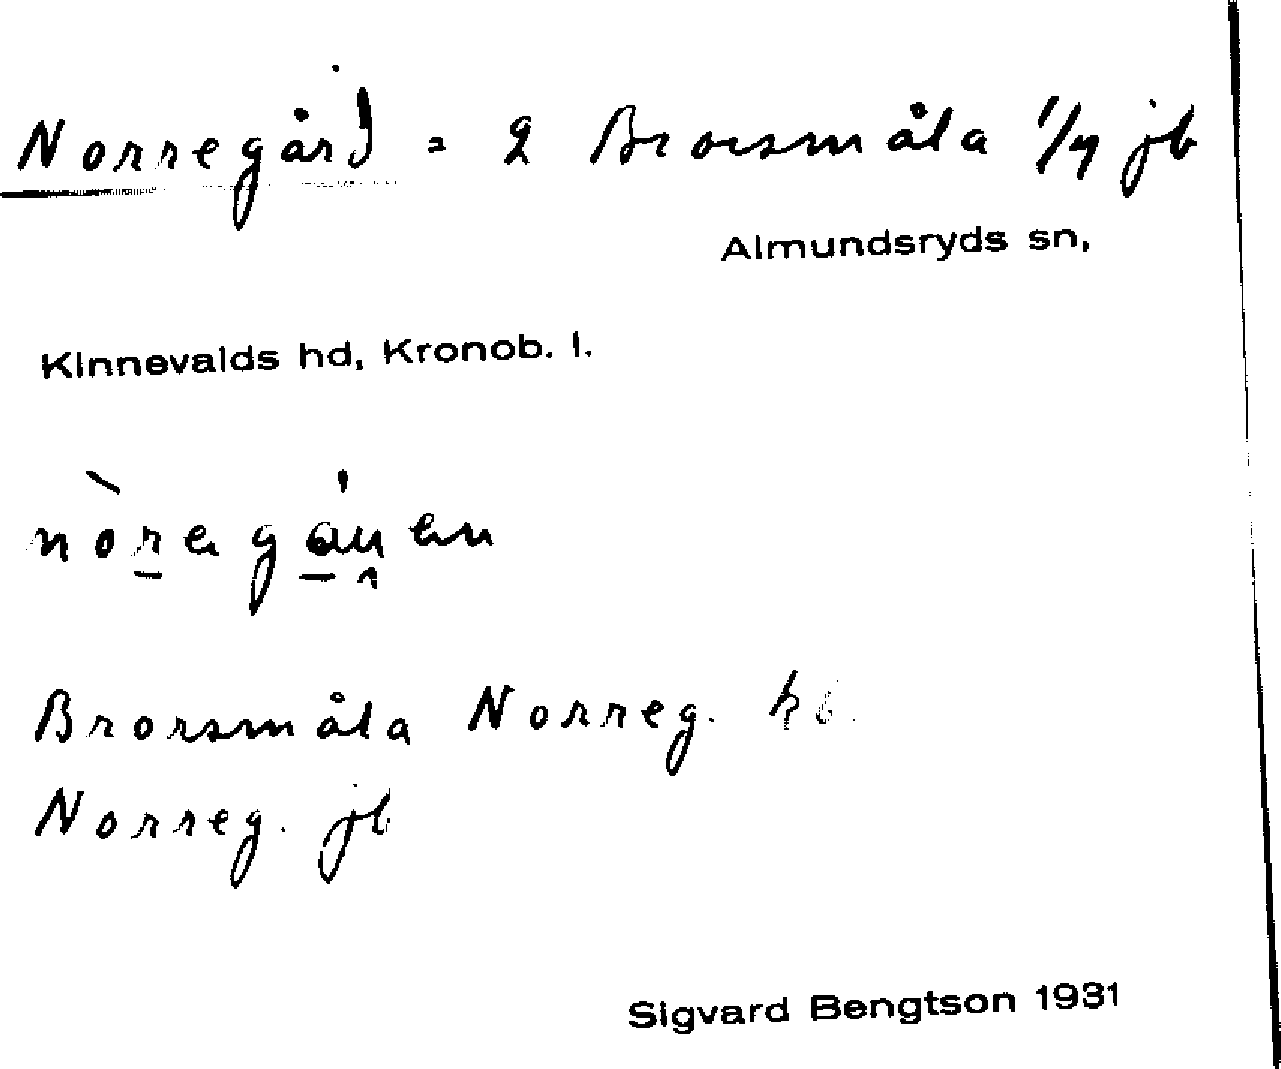 Norregård = 2 Brorsmåla 1/4 jb
Almundsryds sn,
Kinnevalds hd, Kronob. l.
Brorsmåla Norreg. kb.
Norreg. jb
Sigvard Bengtson 1931